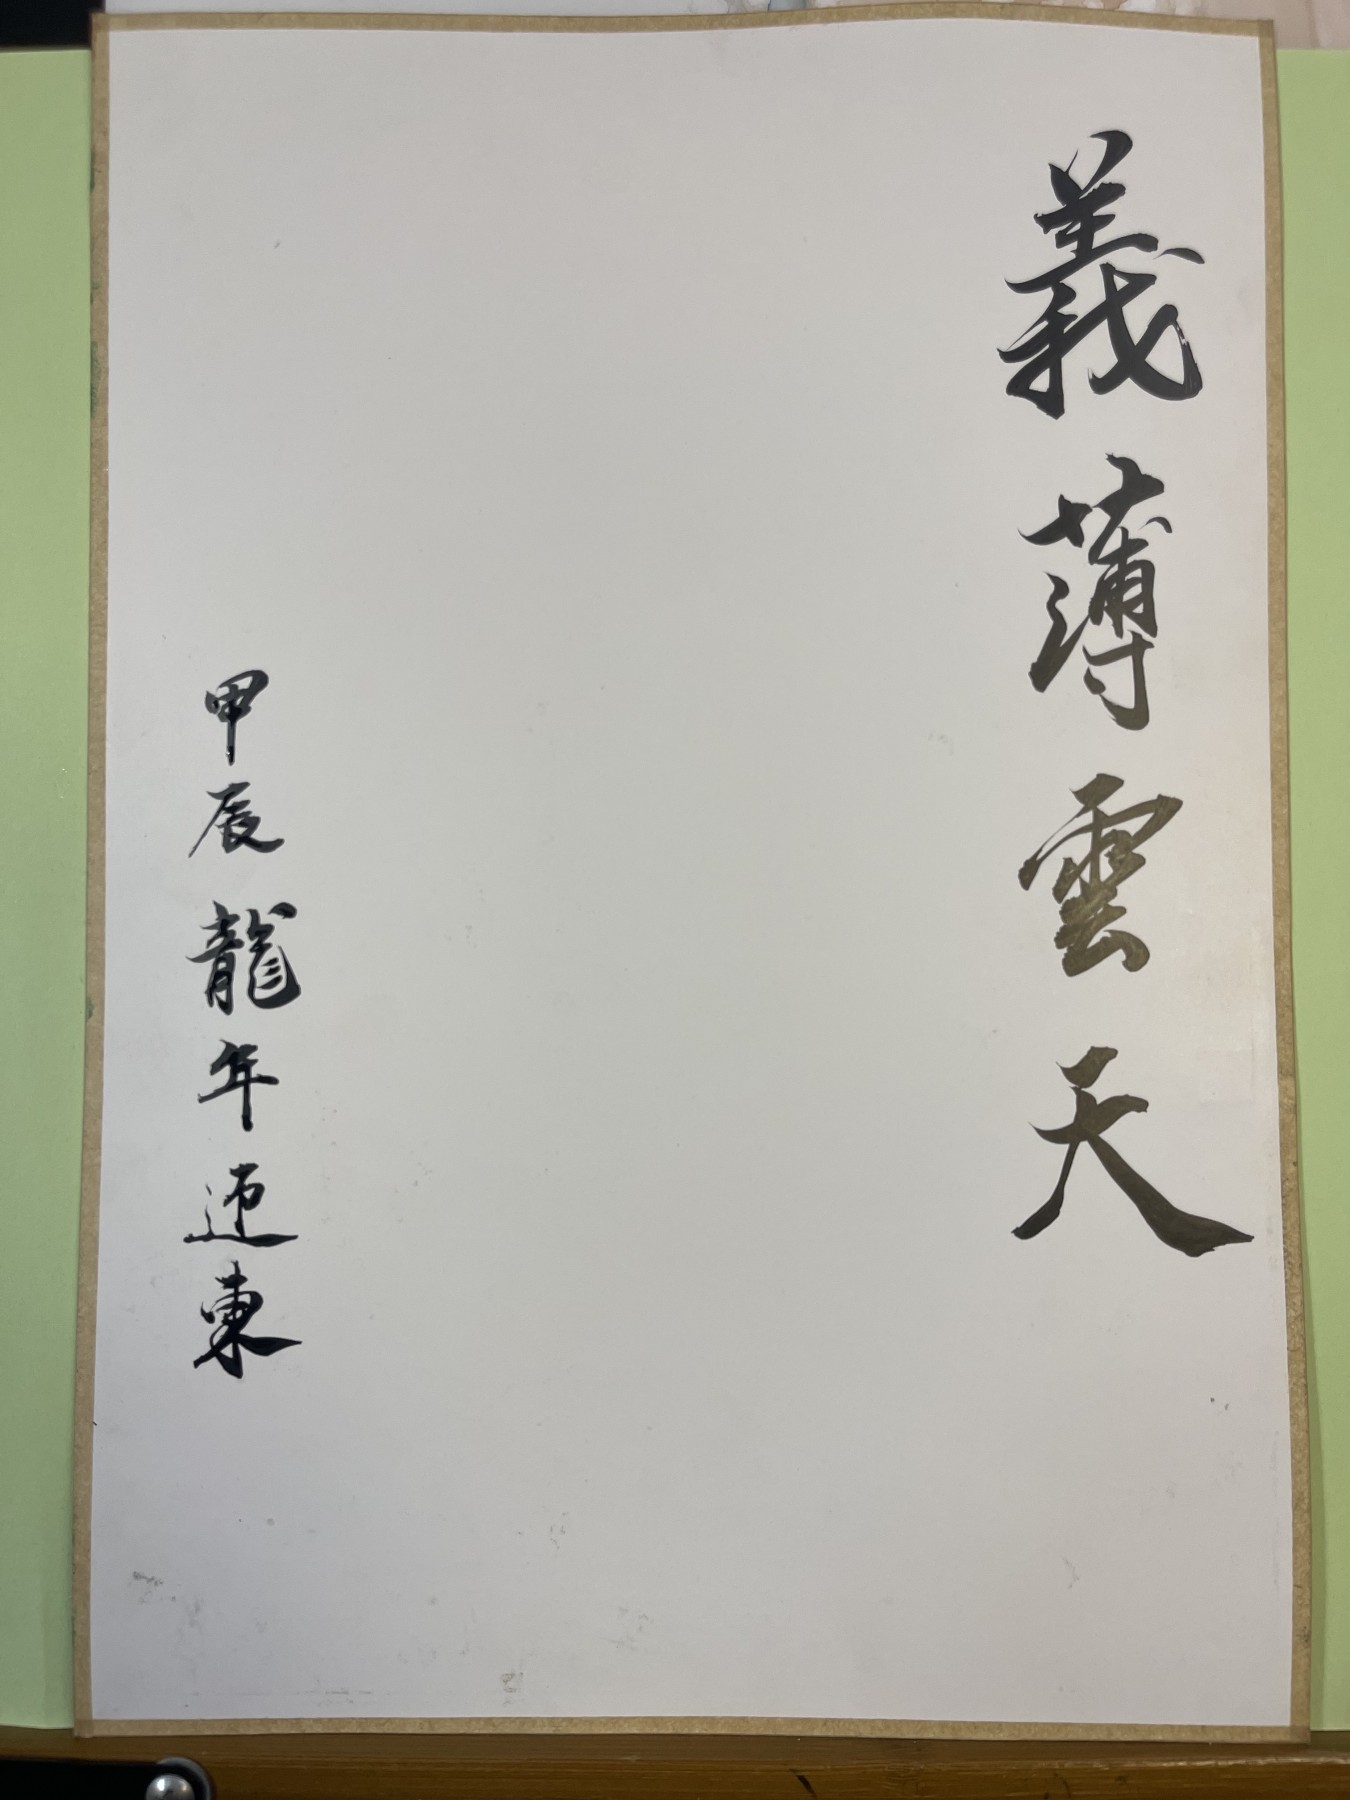 義薄雲天
甲辰龍年迎東